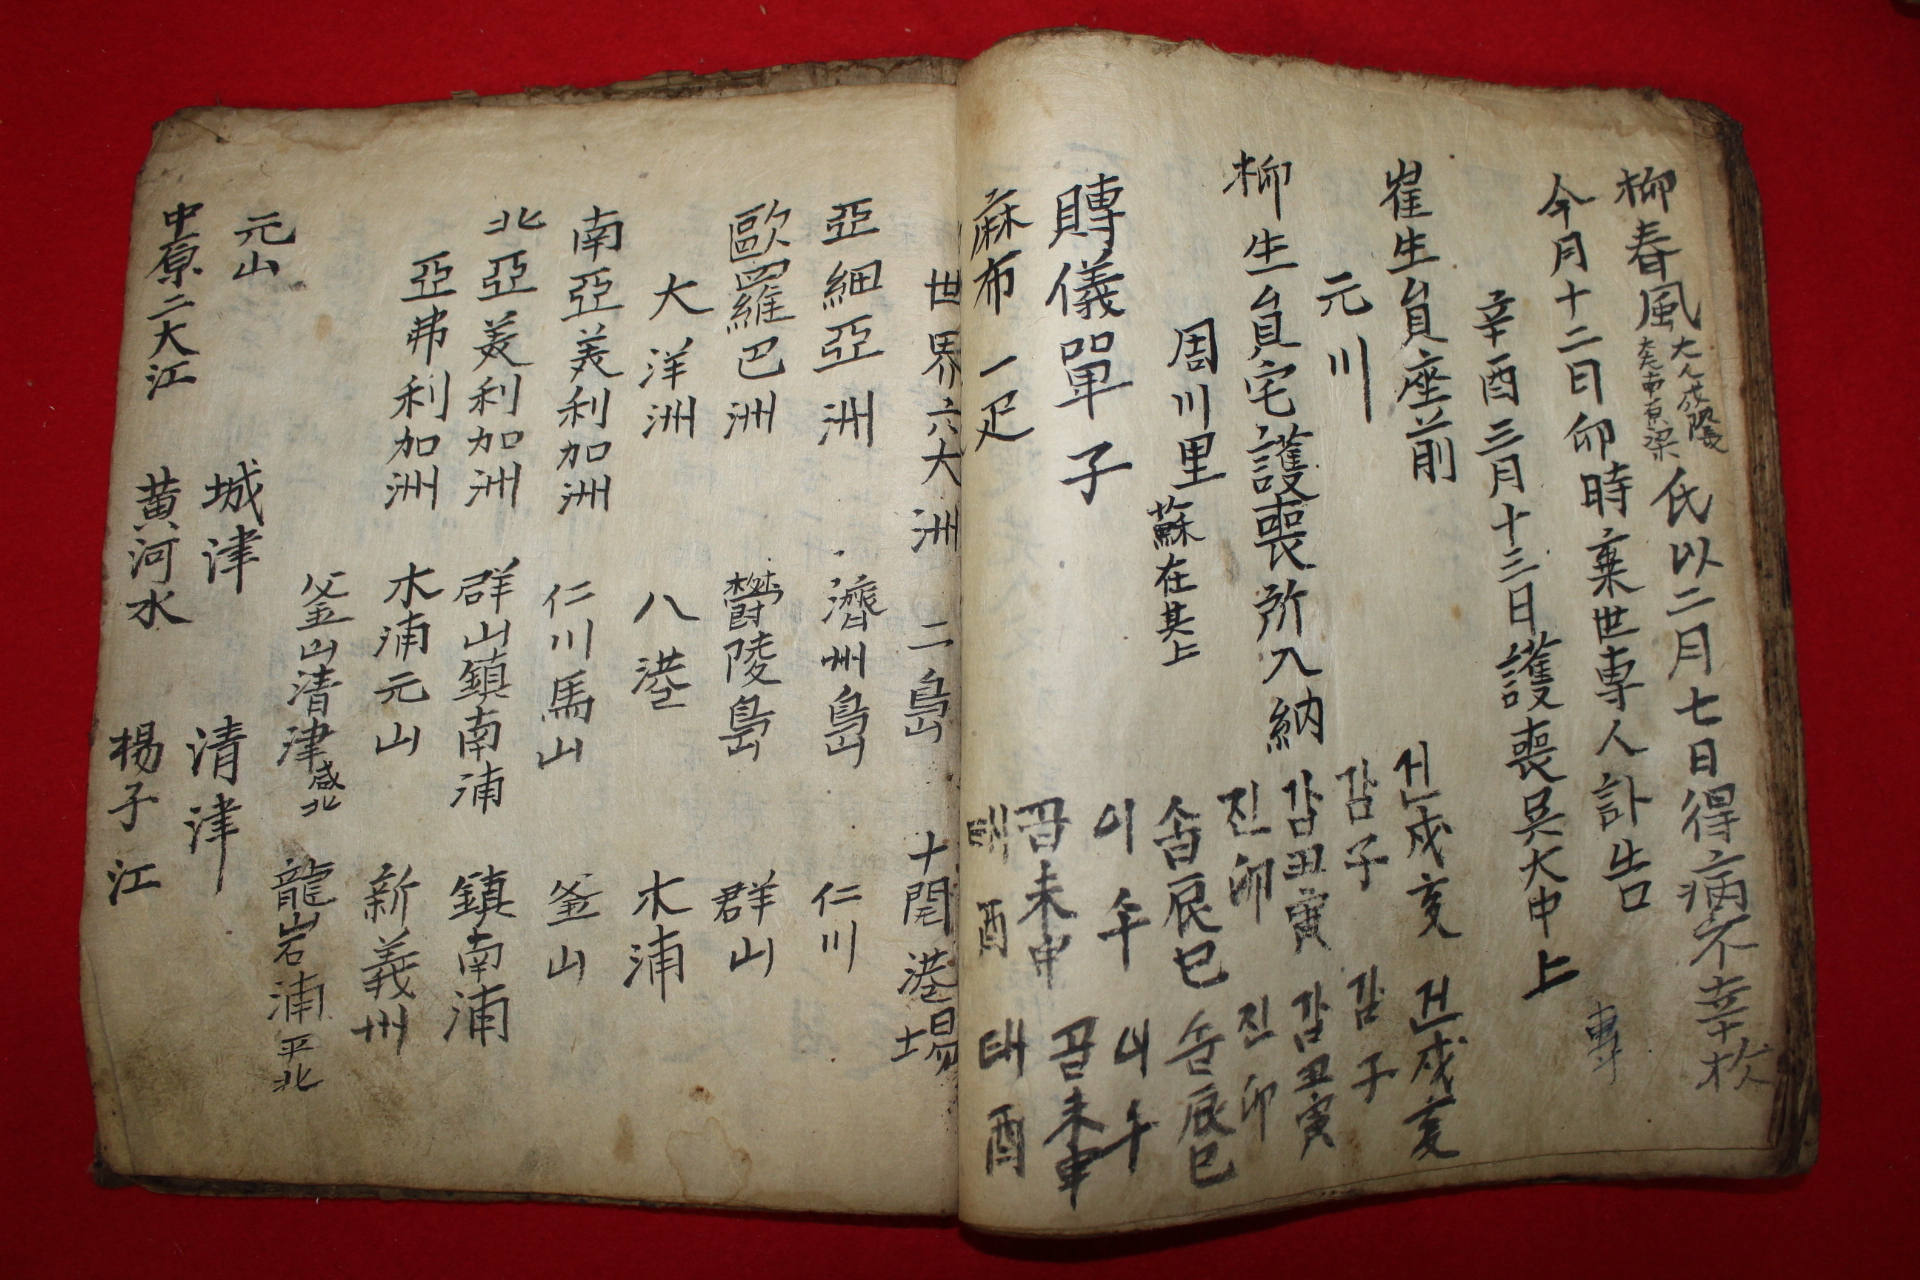 柳春風 大人 大夫人南原梁 氏以二月七日得病不幸於
今月十二日卯時棄世專人訃告
專
辛酉三月十三日護喪吳大中上
崔生員座前
元川
柳生員宅護喪所入納
周川里 蘇在其上
賻儀單子
麻布一疋
건戌亥 건戌亥
감子 감子
감丑寅 감丑寅
진卯 진卯
손辰巳 손辰巳
이午 이午
곤未申 곤未申
태酉 태酉
世界六大洲 二島 十開港場
亞細亞洲 濟州島 仁川
歐羅巴洲 鬱陵島 群山
大洋洲 八港 木浦
南亞美利加洲 仁川馬山 釜山
北亞美利加洲 群山鎮南浦 鎮南浦
亞弗利加洲 木浦元山 新義州
釜山清津 咸北 龍岩浦 平北
元山 城津 清津
中原二大江 黄河水 楊子江